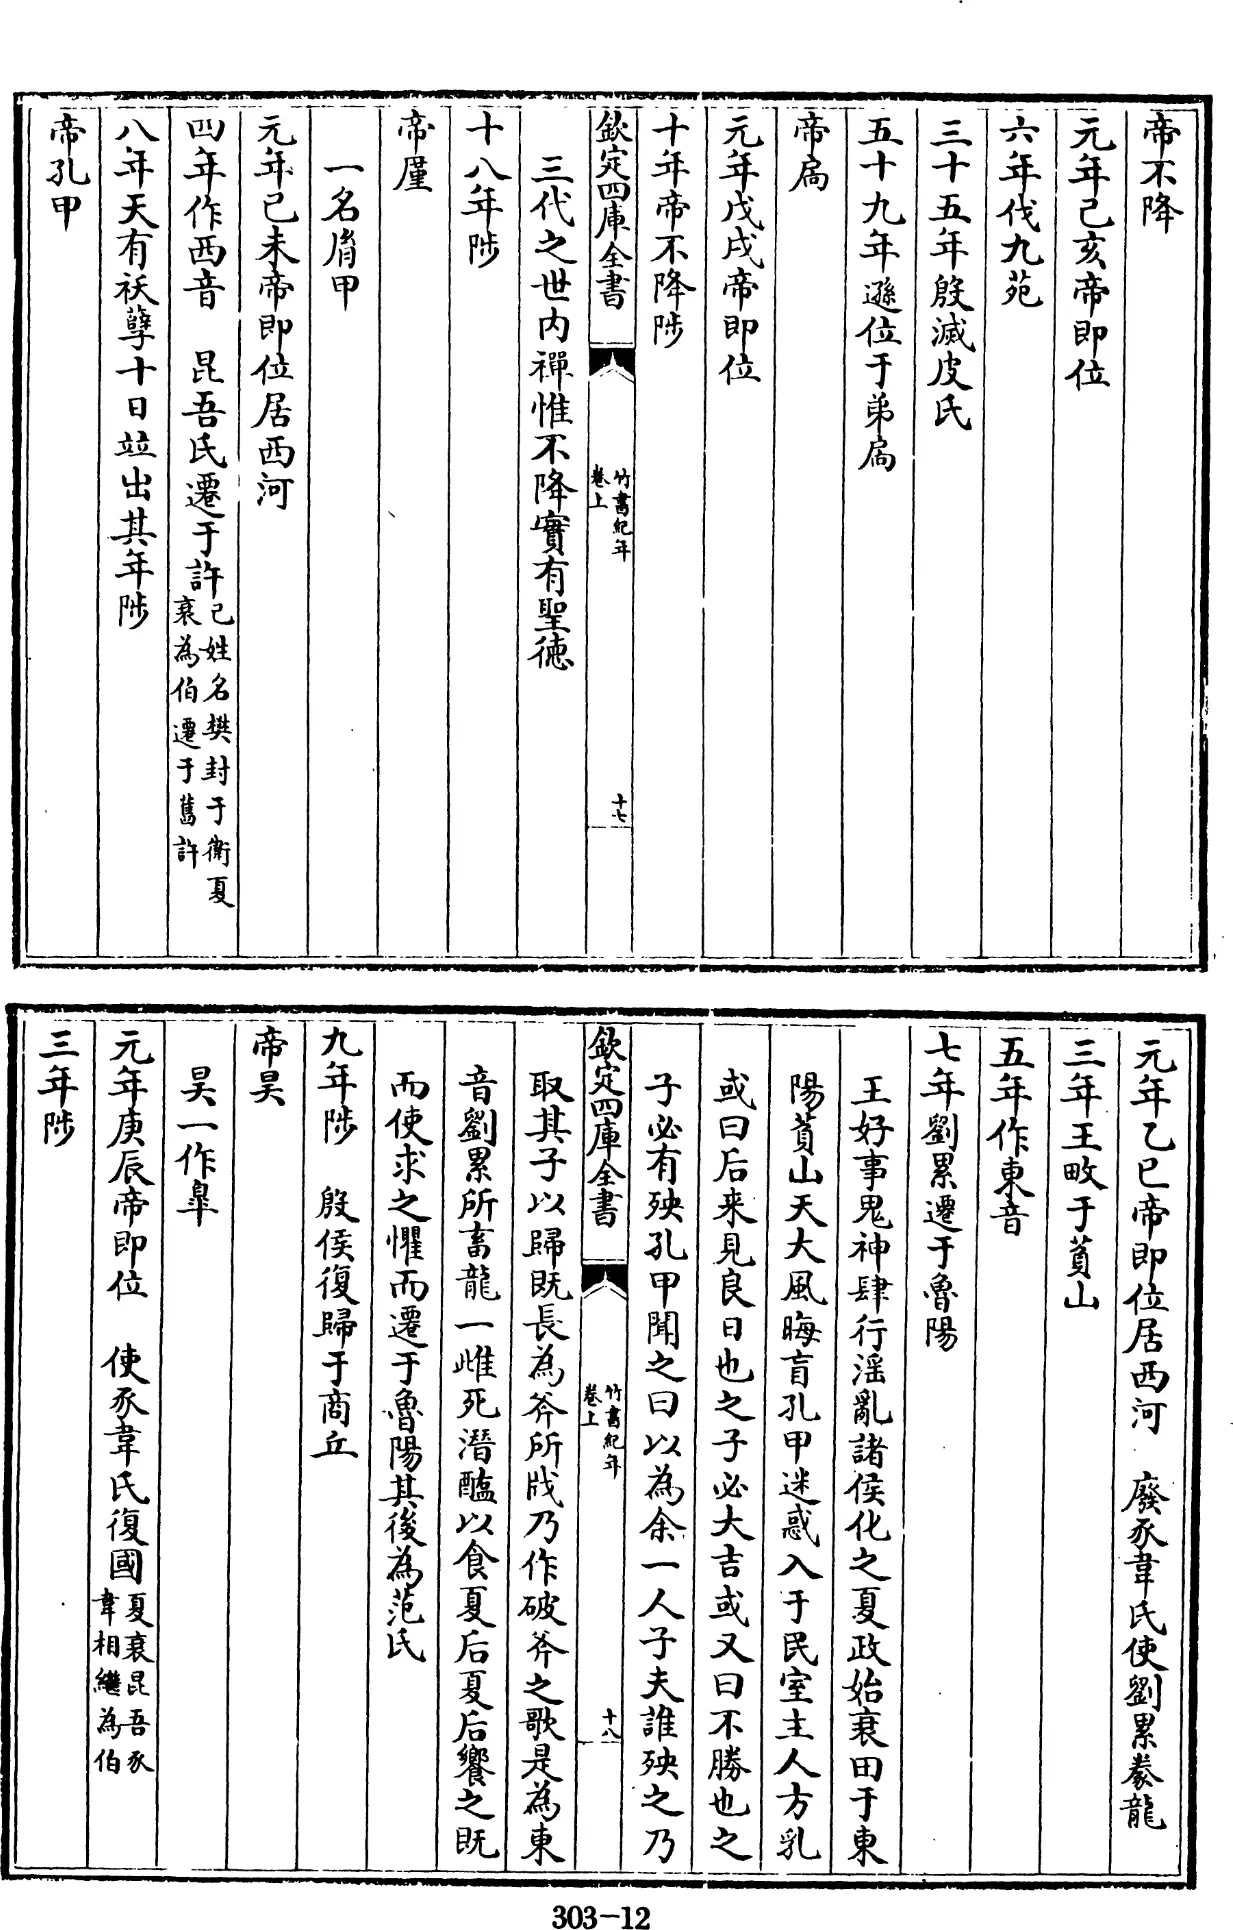 帝不降
元年己亥帝即位
六年伐九苑
三十五年殷滅皮氏
五十九年遜位于弟扃
帝扃
元年戊戌帝即位
十年帝不降陟
欽定四庫全書
竹書紀年
卷上
十七
三代之世内禪惟不降實有聖德
十八年陟
帝廑
一名胥甲
元年己未帝即位居西河
四年作西音 昆吾氏遷于許己姓名樊封于衛夏
衰為伯遷于舊許
八年天有祅孽十日竝出其年陟
帝孔甲
元年乙巳帝即位居西河 廢豕韋氏使劉累豢龍
三年王畋于萯山
五年作東音
七年劉累遷于魯陽
王好事鬼神肆行淫亂諸侯化之夏政始衰田于東
陽萯山天大風晦盲孔甲迷惑入于民室主人方乳
或曰后来見良日也之子必大吉或又曰不勝也之
子必有殃孔甲聞之曰以為余一人子夫誰殃之乃
欽定四庫全書
竹書紀年
卷上
十八
取其子以歸既長為斧所戕乃作破斧之歌是為東
音劉累所畜龍一雌死潛醢以食夏后夏后饗之既
而使求之懼而遷于魯陽其後為范氏
九年陟 殷侯復歸于商丘
帝昊
昊一作皐
元年庚辰帝即位 使豕韋氏復國夏衰昆吾豕
韋相繼為伯
三年陟
303-12